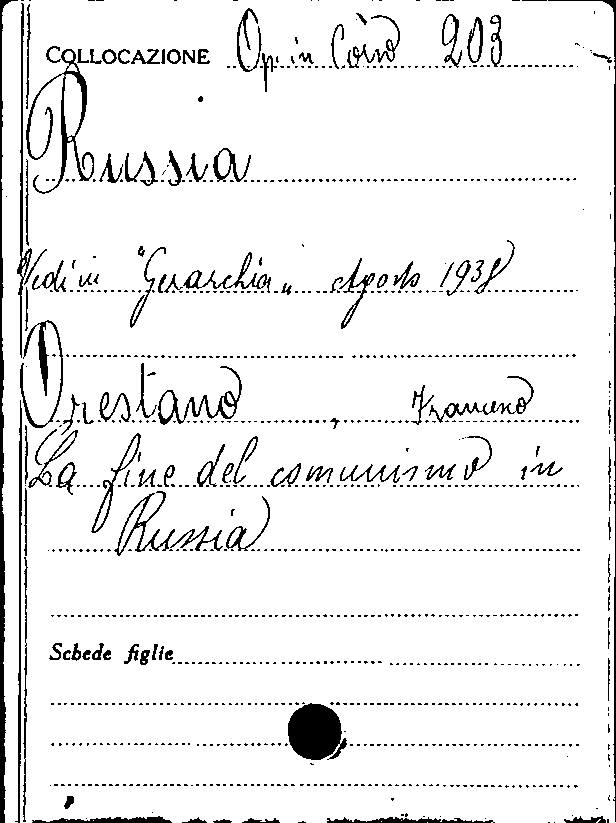 COLLOCAZIONE Op. in Corso 203
Russia
Vedi in "Gerarchia" Agosto 1938
Orestano, Francesco
La fine del comunismo in
Russia
Schede figlie